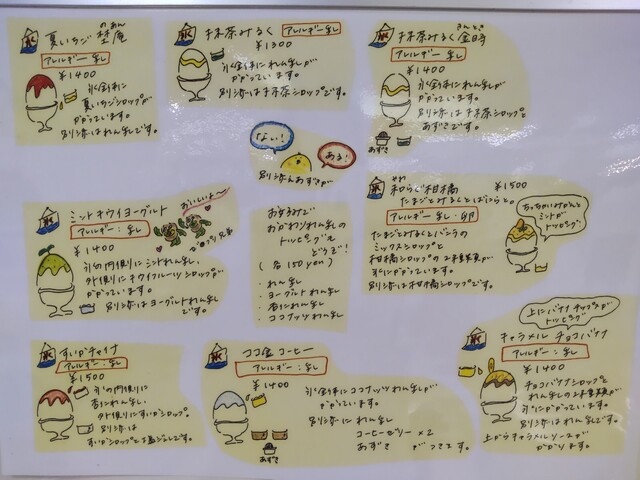 氷
夏いちご 埜庵
のあん
アレルギー 乳
¥1400
氷全体に
夏いちごシロップが
かかっています。
別添は れん乳です。
氷
抹茶みるく アレルギー 乳
¥1300
氷全体に れん乳が
かかっています。
別添は 抹茶シロップです。
氷
抹茶みるく 金時
きんとき
アレルギー 乳
¥1400
氷全体に れん乳が
かかっています。
別添は 抹茶シロップと
あずきです。
あずき
ない!
ある!
別添えあずきが
氷
ミントキウイヨーグルト
アレルギー:乳
おいしいよ〜
¥1400
氷の内側に ミントれん乳、
外側に キウイフルーツシロップが
かかっています。
別添は ヨーグルトれん乳
です。
お好みで
おかわりれん乳の
トッピングも
どうぞ!
(各150yen)
・れん乳
・ヨーグルトれん乳
・杏仁れん乳
・ココナッツれん乳
氷
和らぐ柑橘
¥1500
たまごとみるくとばにらと。
アレルギー 乳・卵
たまごとみるくとバニラの
ミックスシロップと
柑橘シロップの2種類が
氷にかかっています。
別添は 柑橘シロップです。
ちっちゃいみかんと
ミントが
トッピング!
氷
すいかチャイナ
アレルギー:乳
¥1500
氷の内側に
杏仁れん乳、
外側に すいかシロップ。
別添は
すいかシロップと塩ジュレです。
氷
ココ金コーヒー
アレルギー:乳
¥1400
氷全体に ココナッツれん乳が
かかっています。
別添に れん乳
コーヒーゼリー ×2
あずき がつきます。
あずき
上にバナナチップスが
トッピング
氷
キャラメルチョコバナナ
アレルギー:乳
¥1400
チョコバナナシロップと
れん乳の2種類が
氷にかかっています。
別添は れん乳です。
上からキャラメルソースが
かかります。